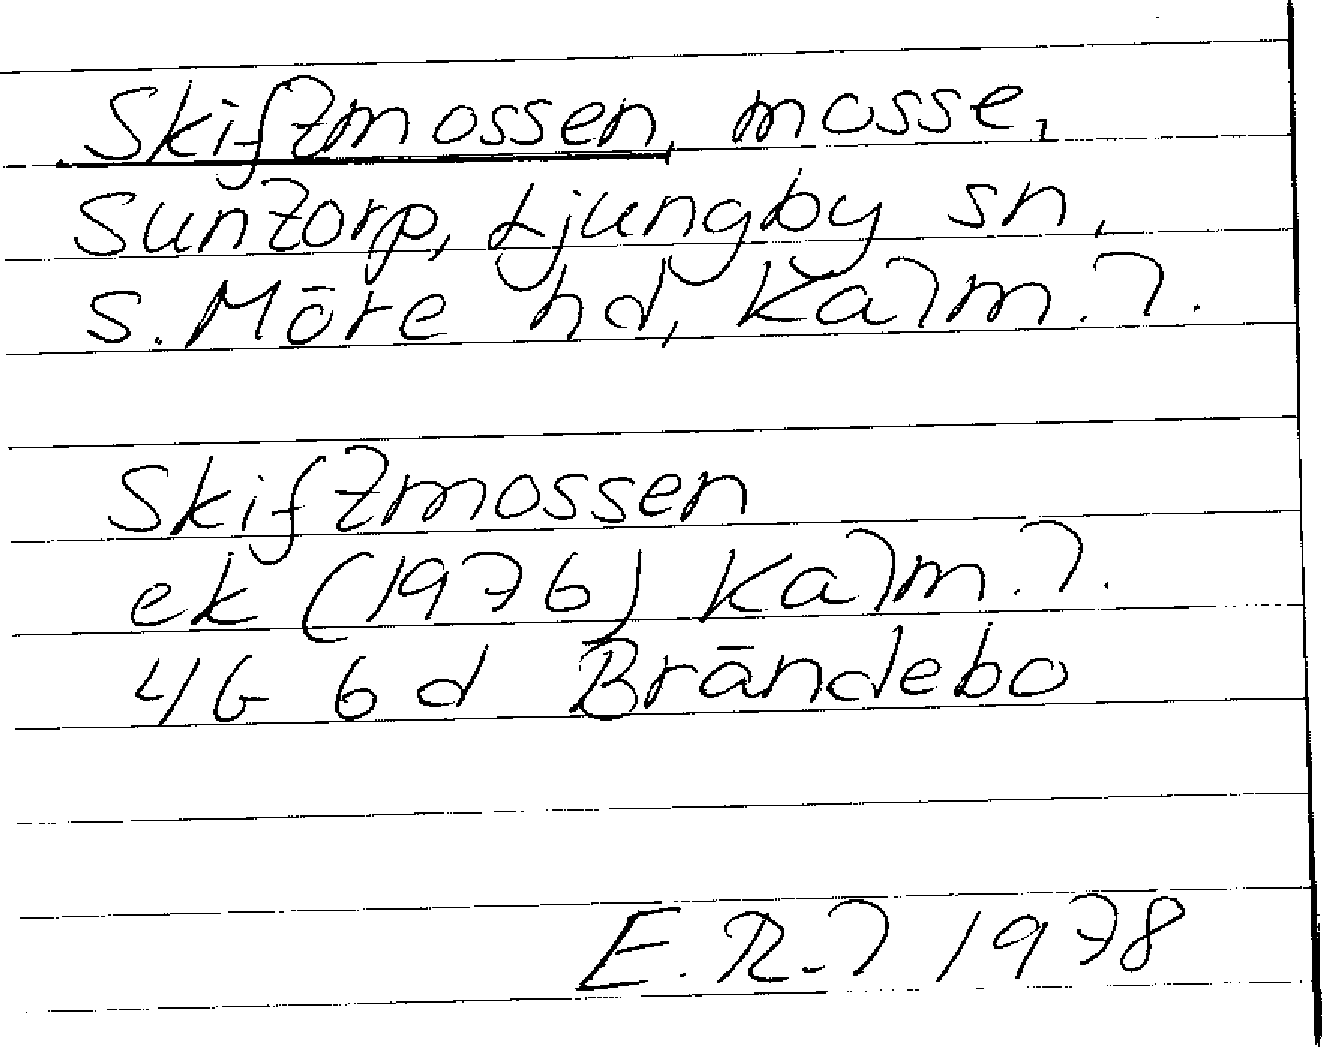 Skiftmossen, mosse,
Suntorp, Ljungby sn,
S. Möre hd, Kalm. l.
Skiftmossen
ek (1976) Kalm. l.
4G 6d Brändebo
E. R-l 1978